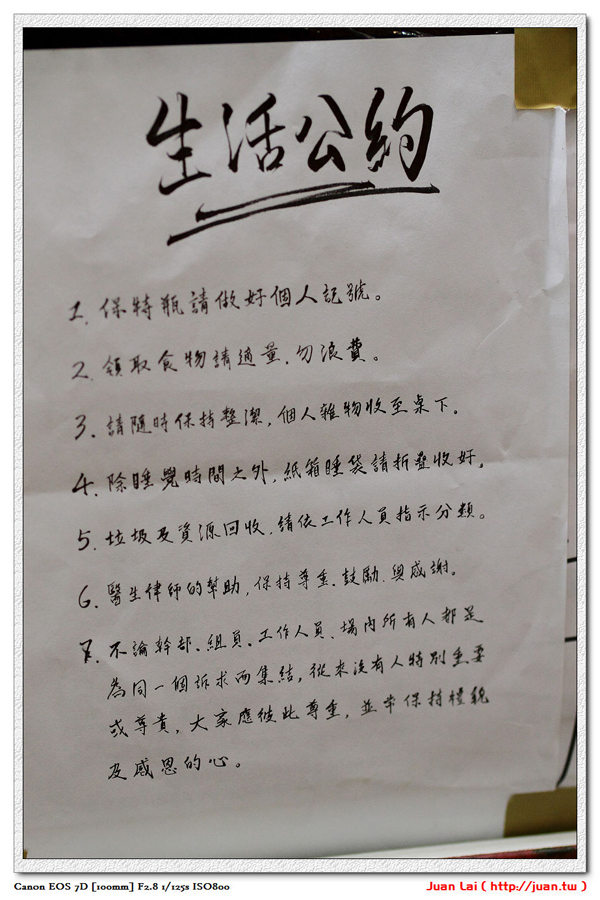 生活公約
1. 保特瓶請做好個人記號。
2. 領取食物請適量.勿浪費。
3. 請隨時保持整潔,個人雜物收至桌下。
4. 除睡覺時間之外,紙箱睡袋請折疊收好。
5. 垃圾及資源回收,請依工作人員指示分類。
6. 醫生律師的幫助,保持尊重、鼓勵、與感謝。
7. 不論幹部、組員、工作人員、場內所有人都是
為同一個訴求而集結,從來沒有人特別重要
或尊貴,大家應彼此尊重,並常保持禮貌
及感恩的心。
Canon EOS 7D [100mm] F2.8 1/125s ISO800
Juan Lai ( http://juan.tw )